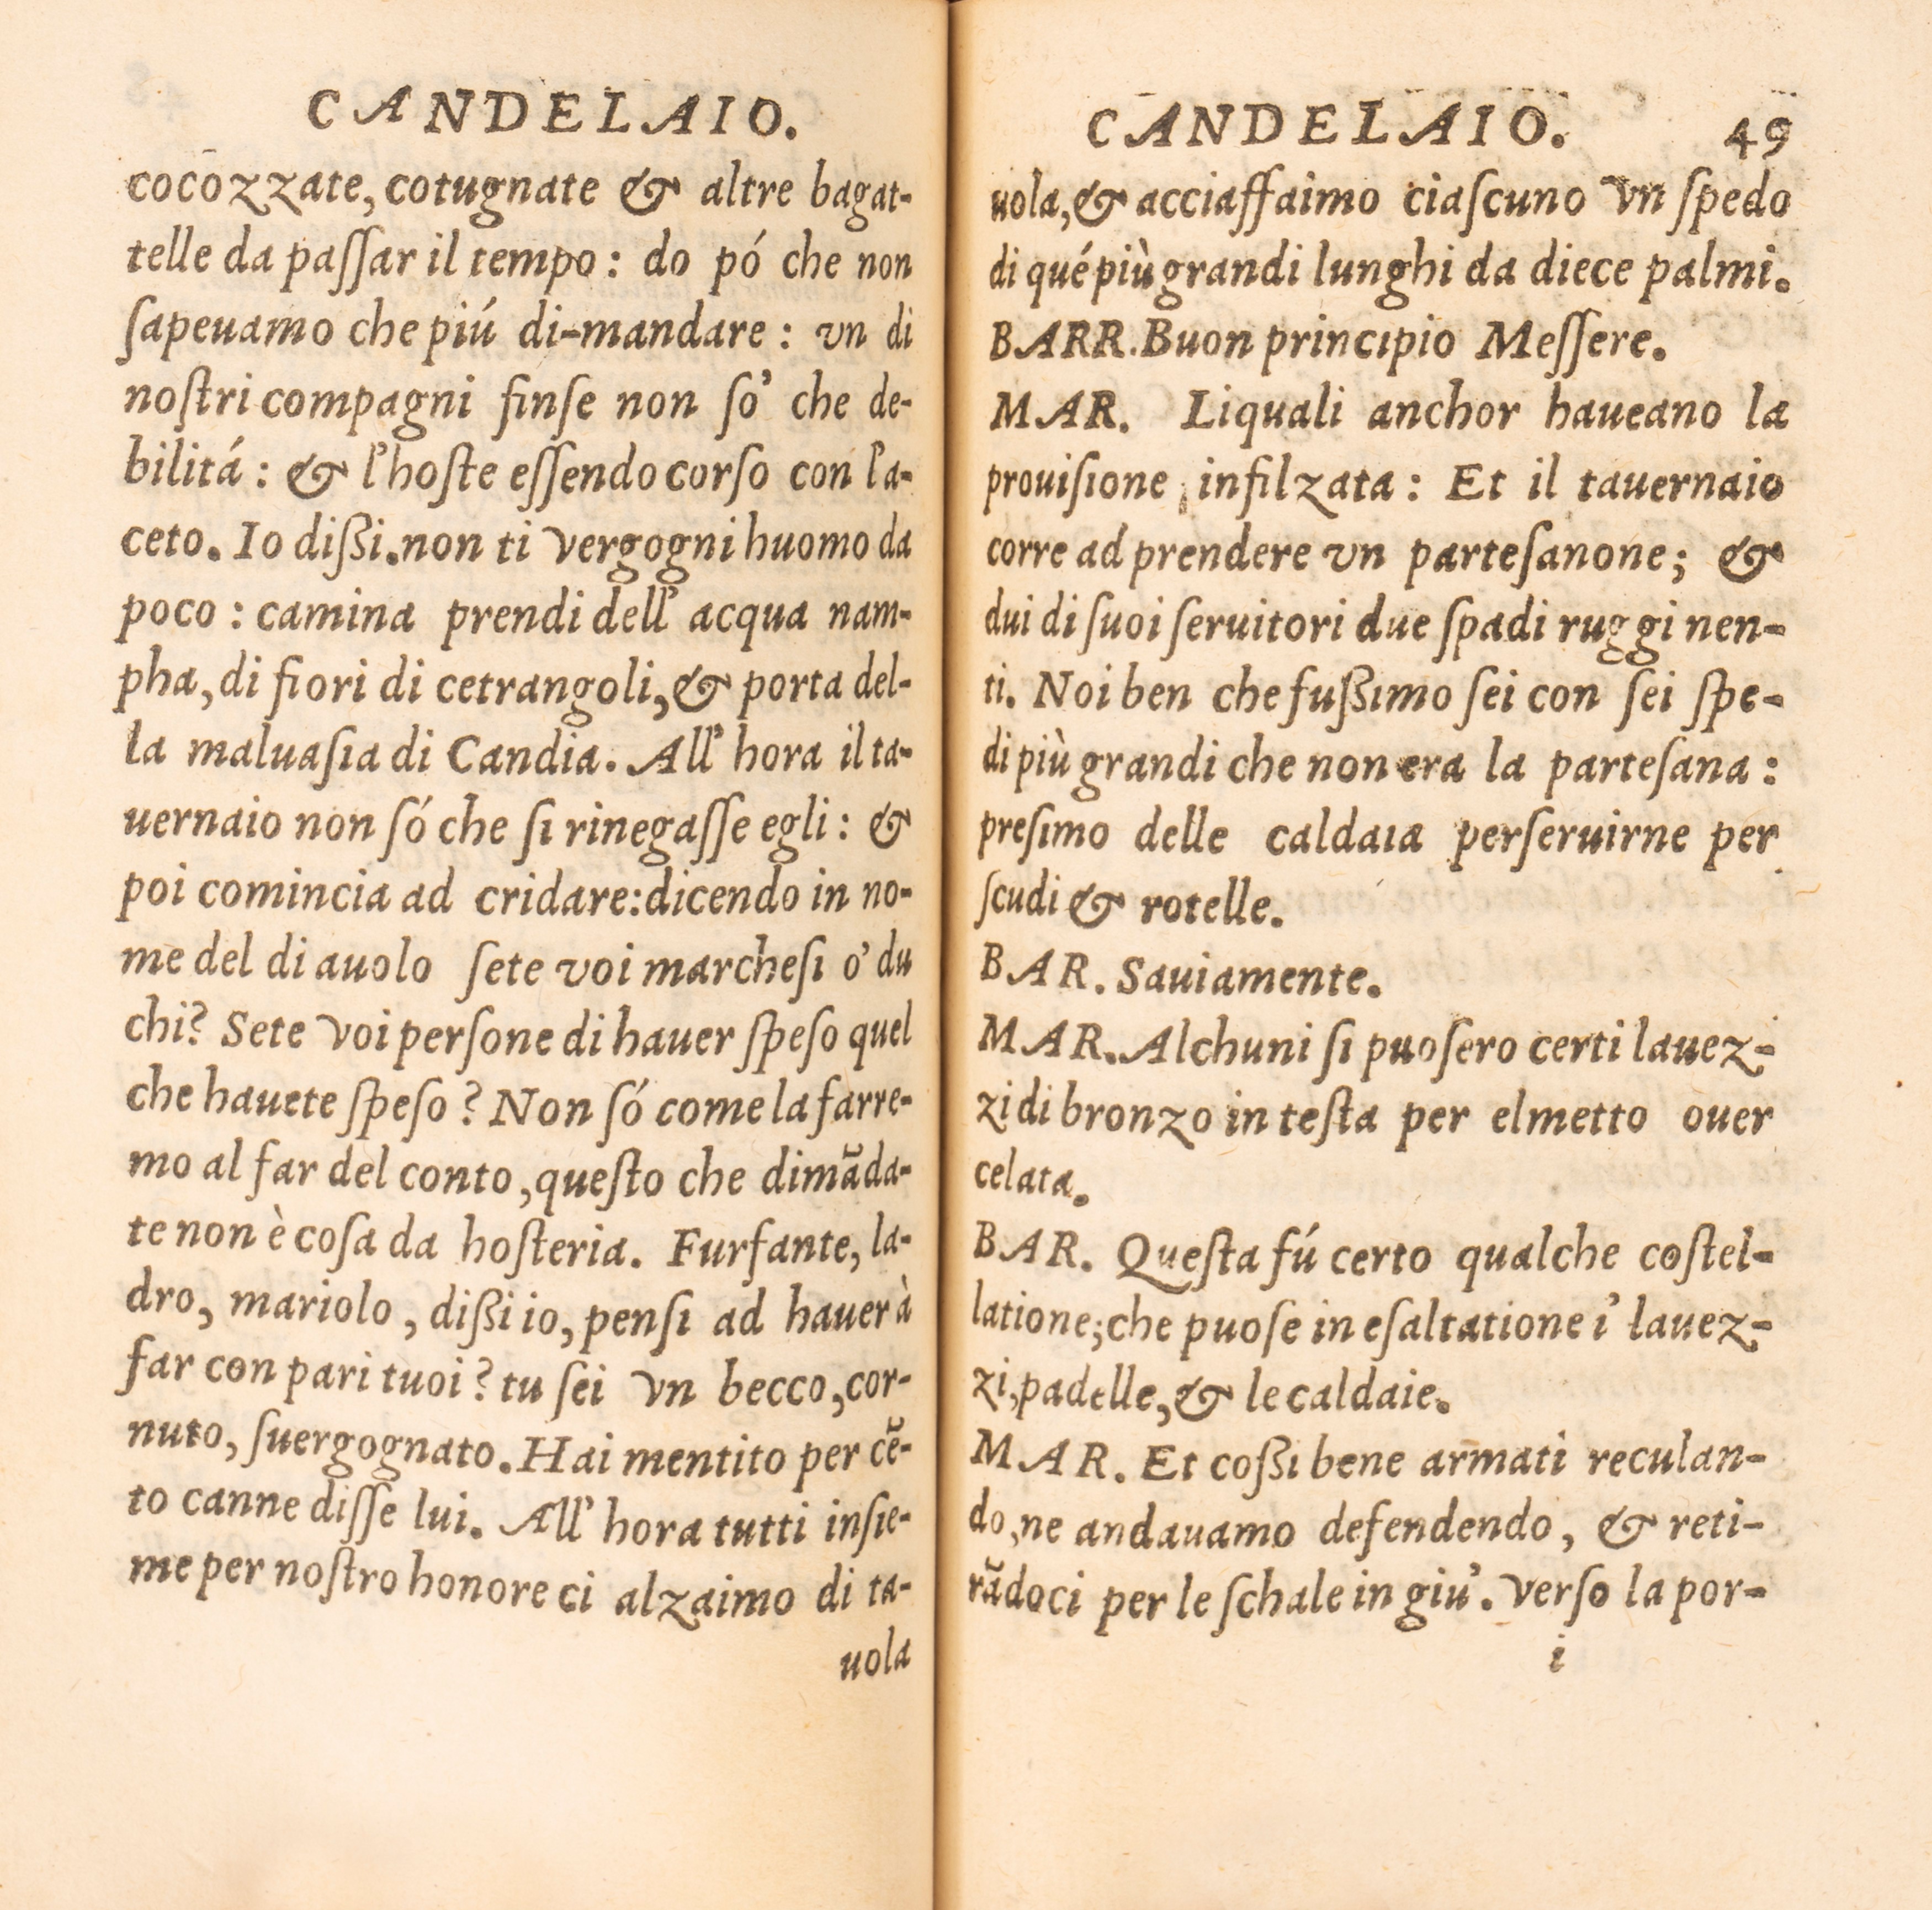 CANDELAIO.
cocozzate, cotugnate & altre bagat-
telle da paſſar il tempo : do pó che non
ſapeuamo che piú di-mandare : vn di
noſtri compagni finſe non ſo' che de-
bilitá : & l'hoſte eſſendo corſo con l'a-
ceto. Io dißi. non ti vergogni huomo da
poco : camina prendi dell' acqua nam-
pha, di fiori di cetrangoli, & porta del-
la maluaſia di Candia. All' hora il ta-
uernaio non ſó che ſi rinegaſſe egli : &
poi comincia ad cridare: dicendo in no-
me del di auolo ſete voi marcheſi o' du
chi? Sete voi perſone di hauer ſpeſo quel
che hauete ſpeſo ? Non ſó come la farre-
mo al far del conto, queſto che dimãda-
te non è coſa da hoſteria. Furfante, la-
dro, mariolo, dißi io, penſi ad hauer à
far con pari tuoi ? tu ſei vn becco, cor-
nuto, ſuergognato. Hai mentito per cẽ-
to canne diſſe lui. All' hora tutti inſie-
me per noſtro honore ci alzaimo di ta-
uola
CANDELAIO. 49
uola, & acciaffaimo ciaſcuno vn ſpedo
di qué più grandi lunghi da diece palmi.
BARR. Buon principio Meſſere.
MAR. Liquali anchor haueano la
prouiſione infilzata : Et il tauernaio
corre ad prendere vn parteſanone; &
dui di ſuoi ſeruitori due ſpadi ruggi nen-
ti. Noi ben che fußimo ſei con ſei ſpe-
di più grandi che non era la parteſana :
preſimo delle caldaia perſeruirne per
ſcudi & rotelle.
BAR. Sauiamente.
MAR. Alchuni ſi puoſero certi lauez-
zi di bronzo in teſta per elmetto ouer
celata.
BAR. Queſta fú certo qualche coſtel-
latione; che puoſe in eſaltatione i' lauez-
zi, padelle, & le caldaie.
MAR. Et coßi bene armati reculan-
do, ne andauamo defendendo, & reti-
rãdoci per le ſchale in giu'. Verſo la por-
i